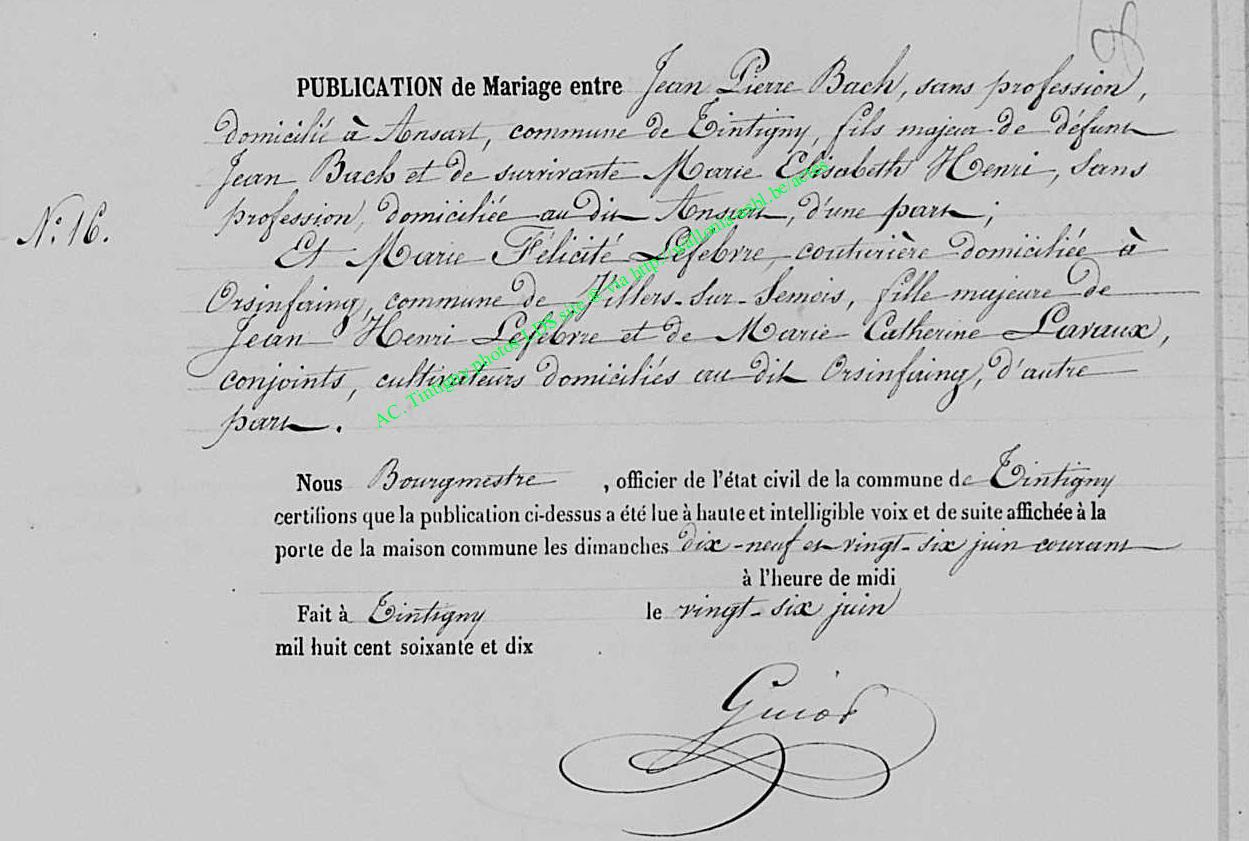 PUBLICATION de Mariage entre Jean Pierre Bach, sans profession,
domicilié à Ansart, commune de Tintigny, fils majeur de défunt
Jean Bach et de survivante Marie Elisabeth Henri, sans
profession, domiciliée au dit Ansart, d'une part;
N.º 16.
Et Marie Félicité Lefebvre, couturière domiciliée à
Orsinfaing, commune de Villers-sur-Semois, fille majeure de
Jean Henri Lefebvre et de Marie Catherine Lavaux,
conjoints, cultivateurs domiciliés au dit Orsinfaing, d'autre
part.
AC. Tintigny photos LDS site © via http://wallonia-asbl.be/actes
Nous Bourgmestre , officier de l'état civil de la commune de Tintigny
certifions que la publication ci-dessus a été lue à haute et intelligible voix et de suite affichée à la
porte de la maison commune les dimanches dix-neuf et vingt-six juin courant
à l'heure de midi
Fait à Tintigny le vingt-six juin
mil huit cent soixante et dix
Guiot